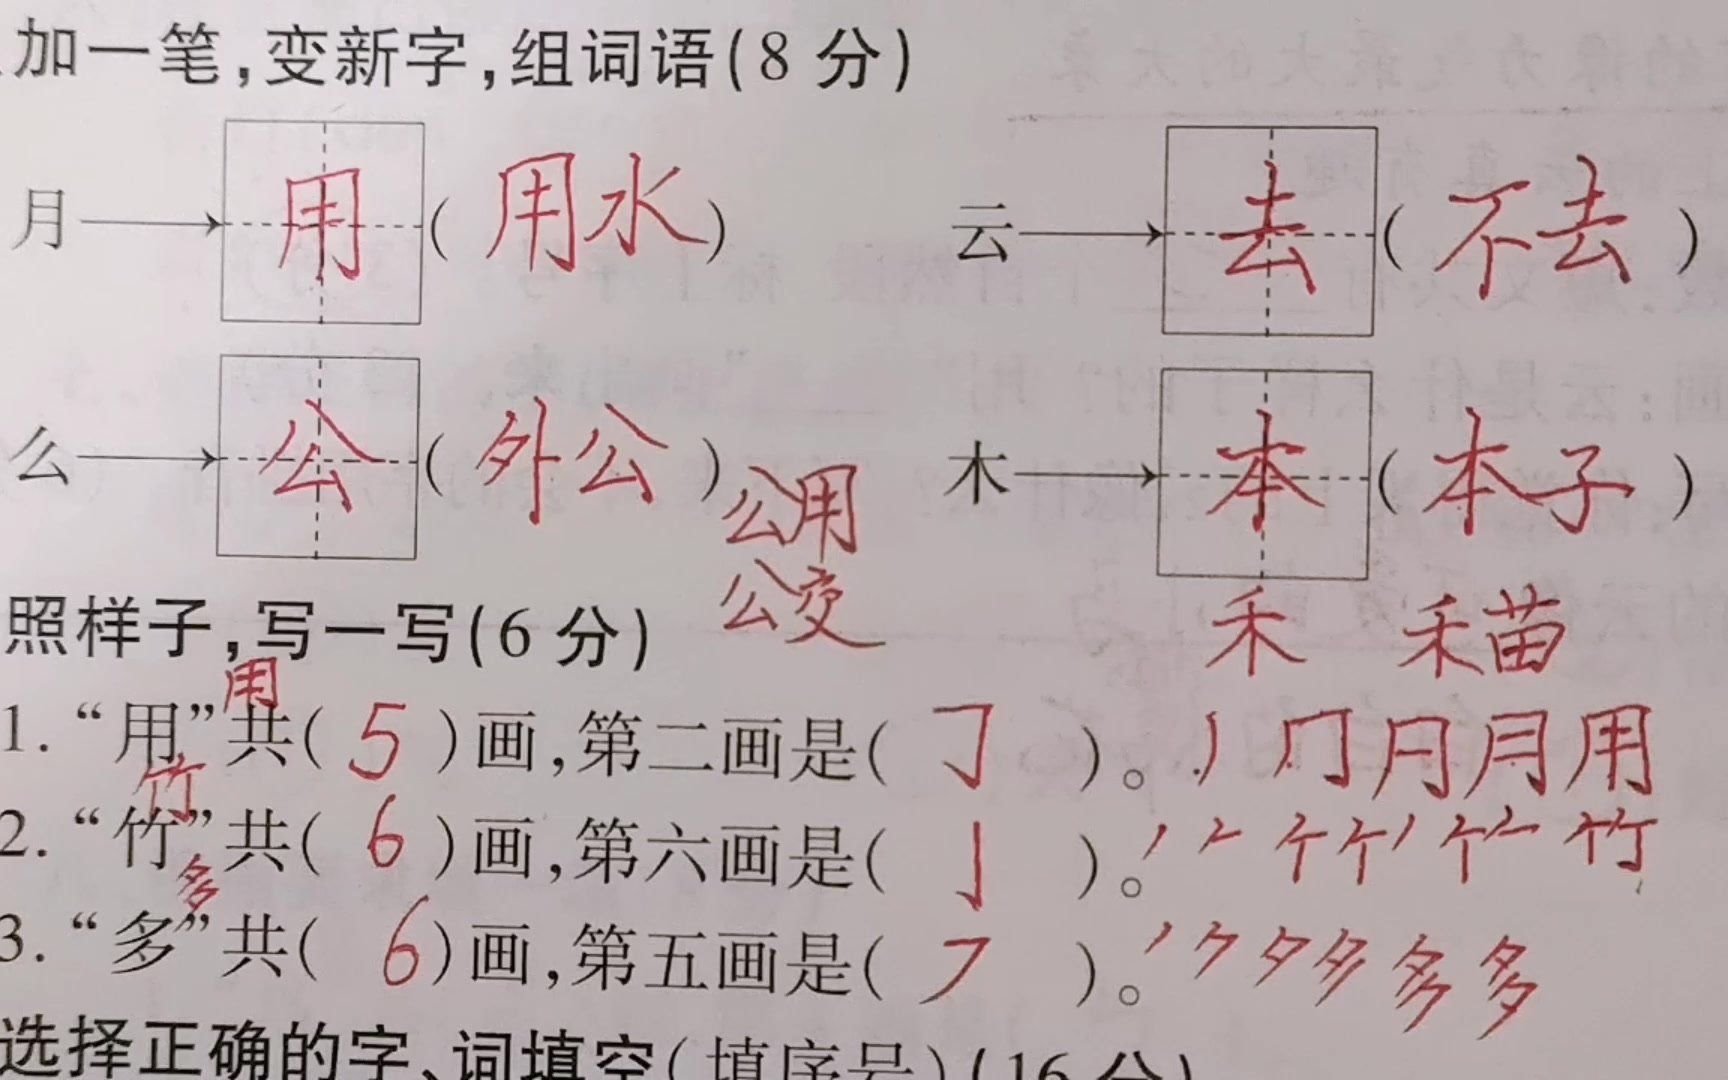 加一笔,变新字,组词语(8 分)
月 用 ( 用水 ) 云 去 ( 不去 )
么 公 ( 外公 ) 公用 木 本 ( 本子 )
公交
禾 禾苗
照样子,写一写(6 分)
用
1. “用”共( 5 )画,第二画是( 𠃌 )。丿 冂 月 月 用
竹
2. “竹”共( 6 )画,第六画是( 亅 )。竹
多
3. “多”共( 6 )画,第五画是( ㇇ )。夕 多 多
选择正确的字、词填空(填序号)(16 分)